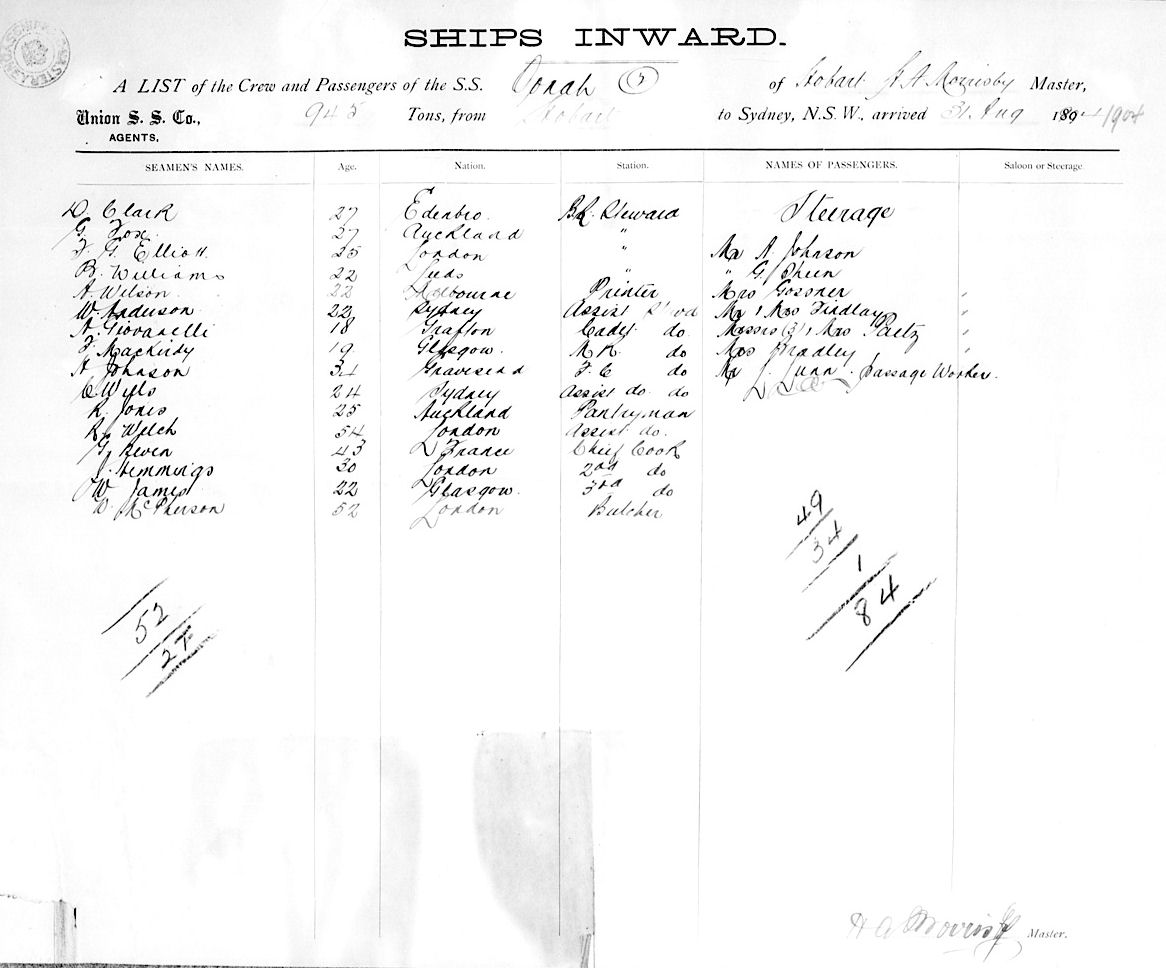 SHIPS INWARD.
A LIST of the Crew and Passengers of the S.S. Oonah (5) of Hobart Master,
Union S. S. Co., 945 Tons, from Hobart to Sydney, N.S.W., arrived 31 Aug 189 /1904
AGENTS,
SEAMEN'S NAMES. Age. Nation. Station. NAMES OF PASSENGERS. Saloon or Steerage.
D. Clark 27 Edenbro. Steward Steerage
G. Fox 27 Auckland "
F. G. Elliott 25 London " Mr A Johnson
B. Williams 22 Leeds " " G. Sheen
A. Wilson 22 Melbourne Printer Mrs Gossner "
W. Anderson 22 Sydney Assist Mr & Mrs Findlay "
A Giovanelli 18 Grafton Cadet do. Messrs (3) & Mrs Paetz "
F. Mackirdy 19 Glasgow. M R do Mrs Bradley "
A Johnson 34 Gravesend F. C do Mr J. Lunn. Passage Worker.
Wyles 24 Sydney Assist do. do
R. Jones 25 Auckland Pantryman
R. Welch 54 London Assist do.
G. Beven 43 France Chief Cook
J. Hemmings 30 London 2nd do
W. James 22 Glasgow. 3rd do
W. McPherson 52 London Butcher
49
34
1
84
52
27
Master.